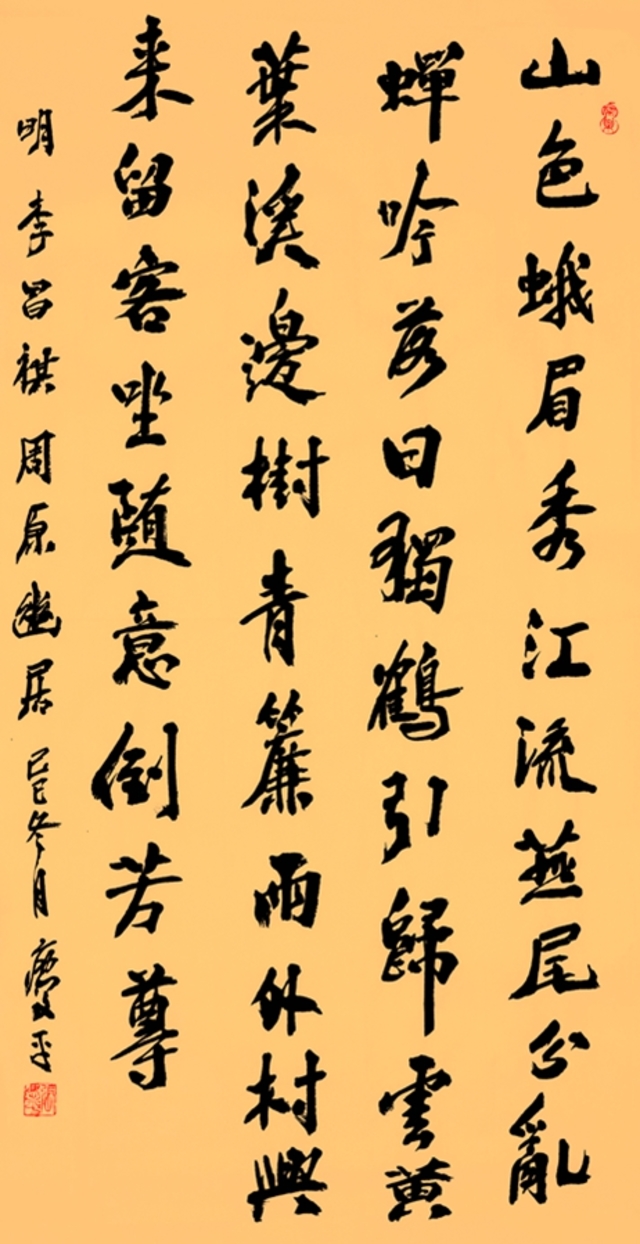 山色蛾眉秀江流燕尾分亂
蟬吟落日獨鶴引歸雲黃
葉溪邊樹青簾雨外村興
来留客坐随意倒芳尊
明李昌祺周原幽居己巳冬月慶平